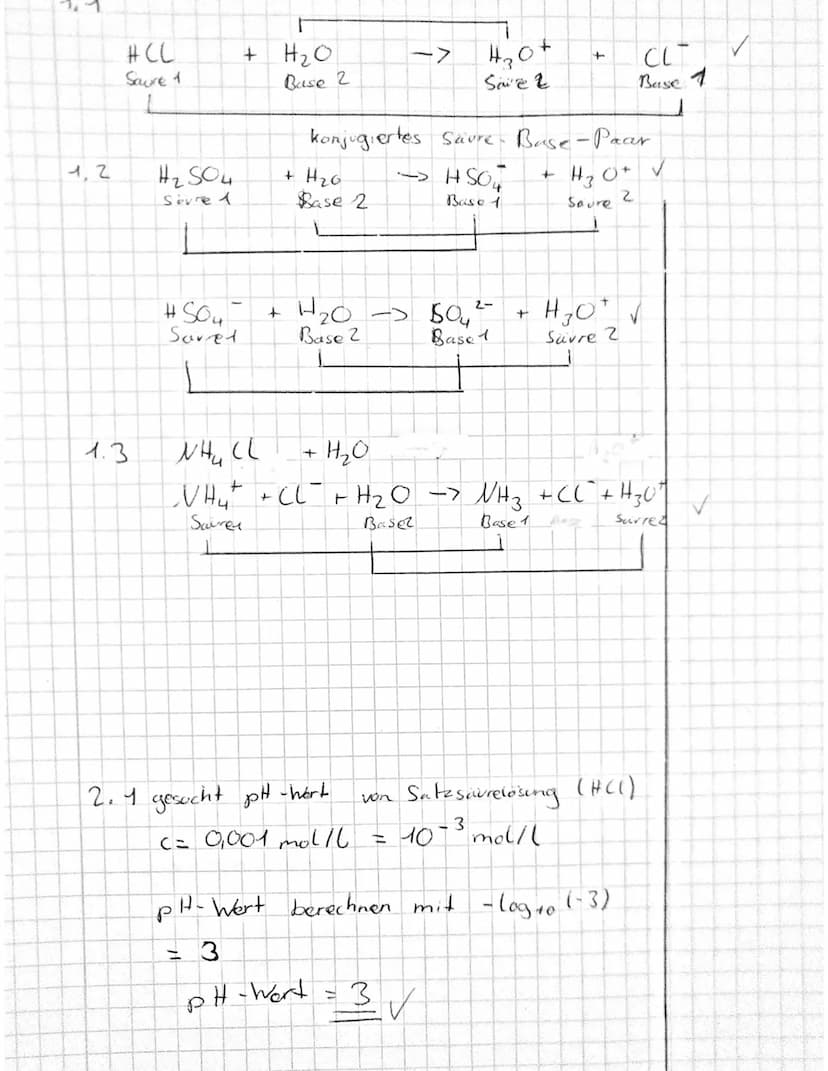 1.1
HCl + H₂O –> H₃O⁺ + Cl⁻ ✓
Säure 1 Base 2 Säure 2 Base 1
konjugiertes Säure-Base-Paar
1.2 H₂SO₄ + H₂O –> HSO₄⁻ + H₃O⁺ ✓
Säure 1 Base 2 Base 1 Säure 2
HSO₄⁻ + H₂O –> SO₄²⁻ + H₃O⁺ ✓
Säure 1 Base 2 Base 1 Säure 2
1.3 NH₄Cl + H₂O
NH₄⁺ + Cl⁻ + H₂O –> NH₃ + Cl⁻ + H₃O⁺ ✓
Säure 1 Base 2 Base 1 Säure 2
2.1 gesucht pH-Wert von Salzsäurelösung (HCl)
c = 0,001 mol/l = 10⁻³ mol/l
pH-Wert berechnen mit -log₁₀ (-3)
= 3
pH-Wert = 3 ✓